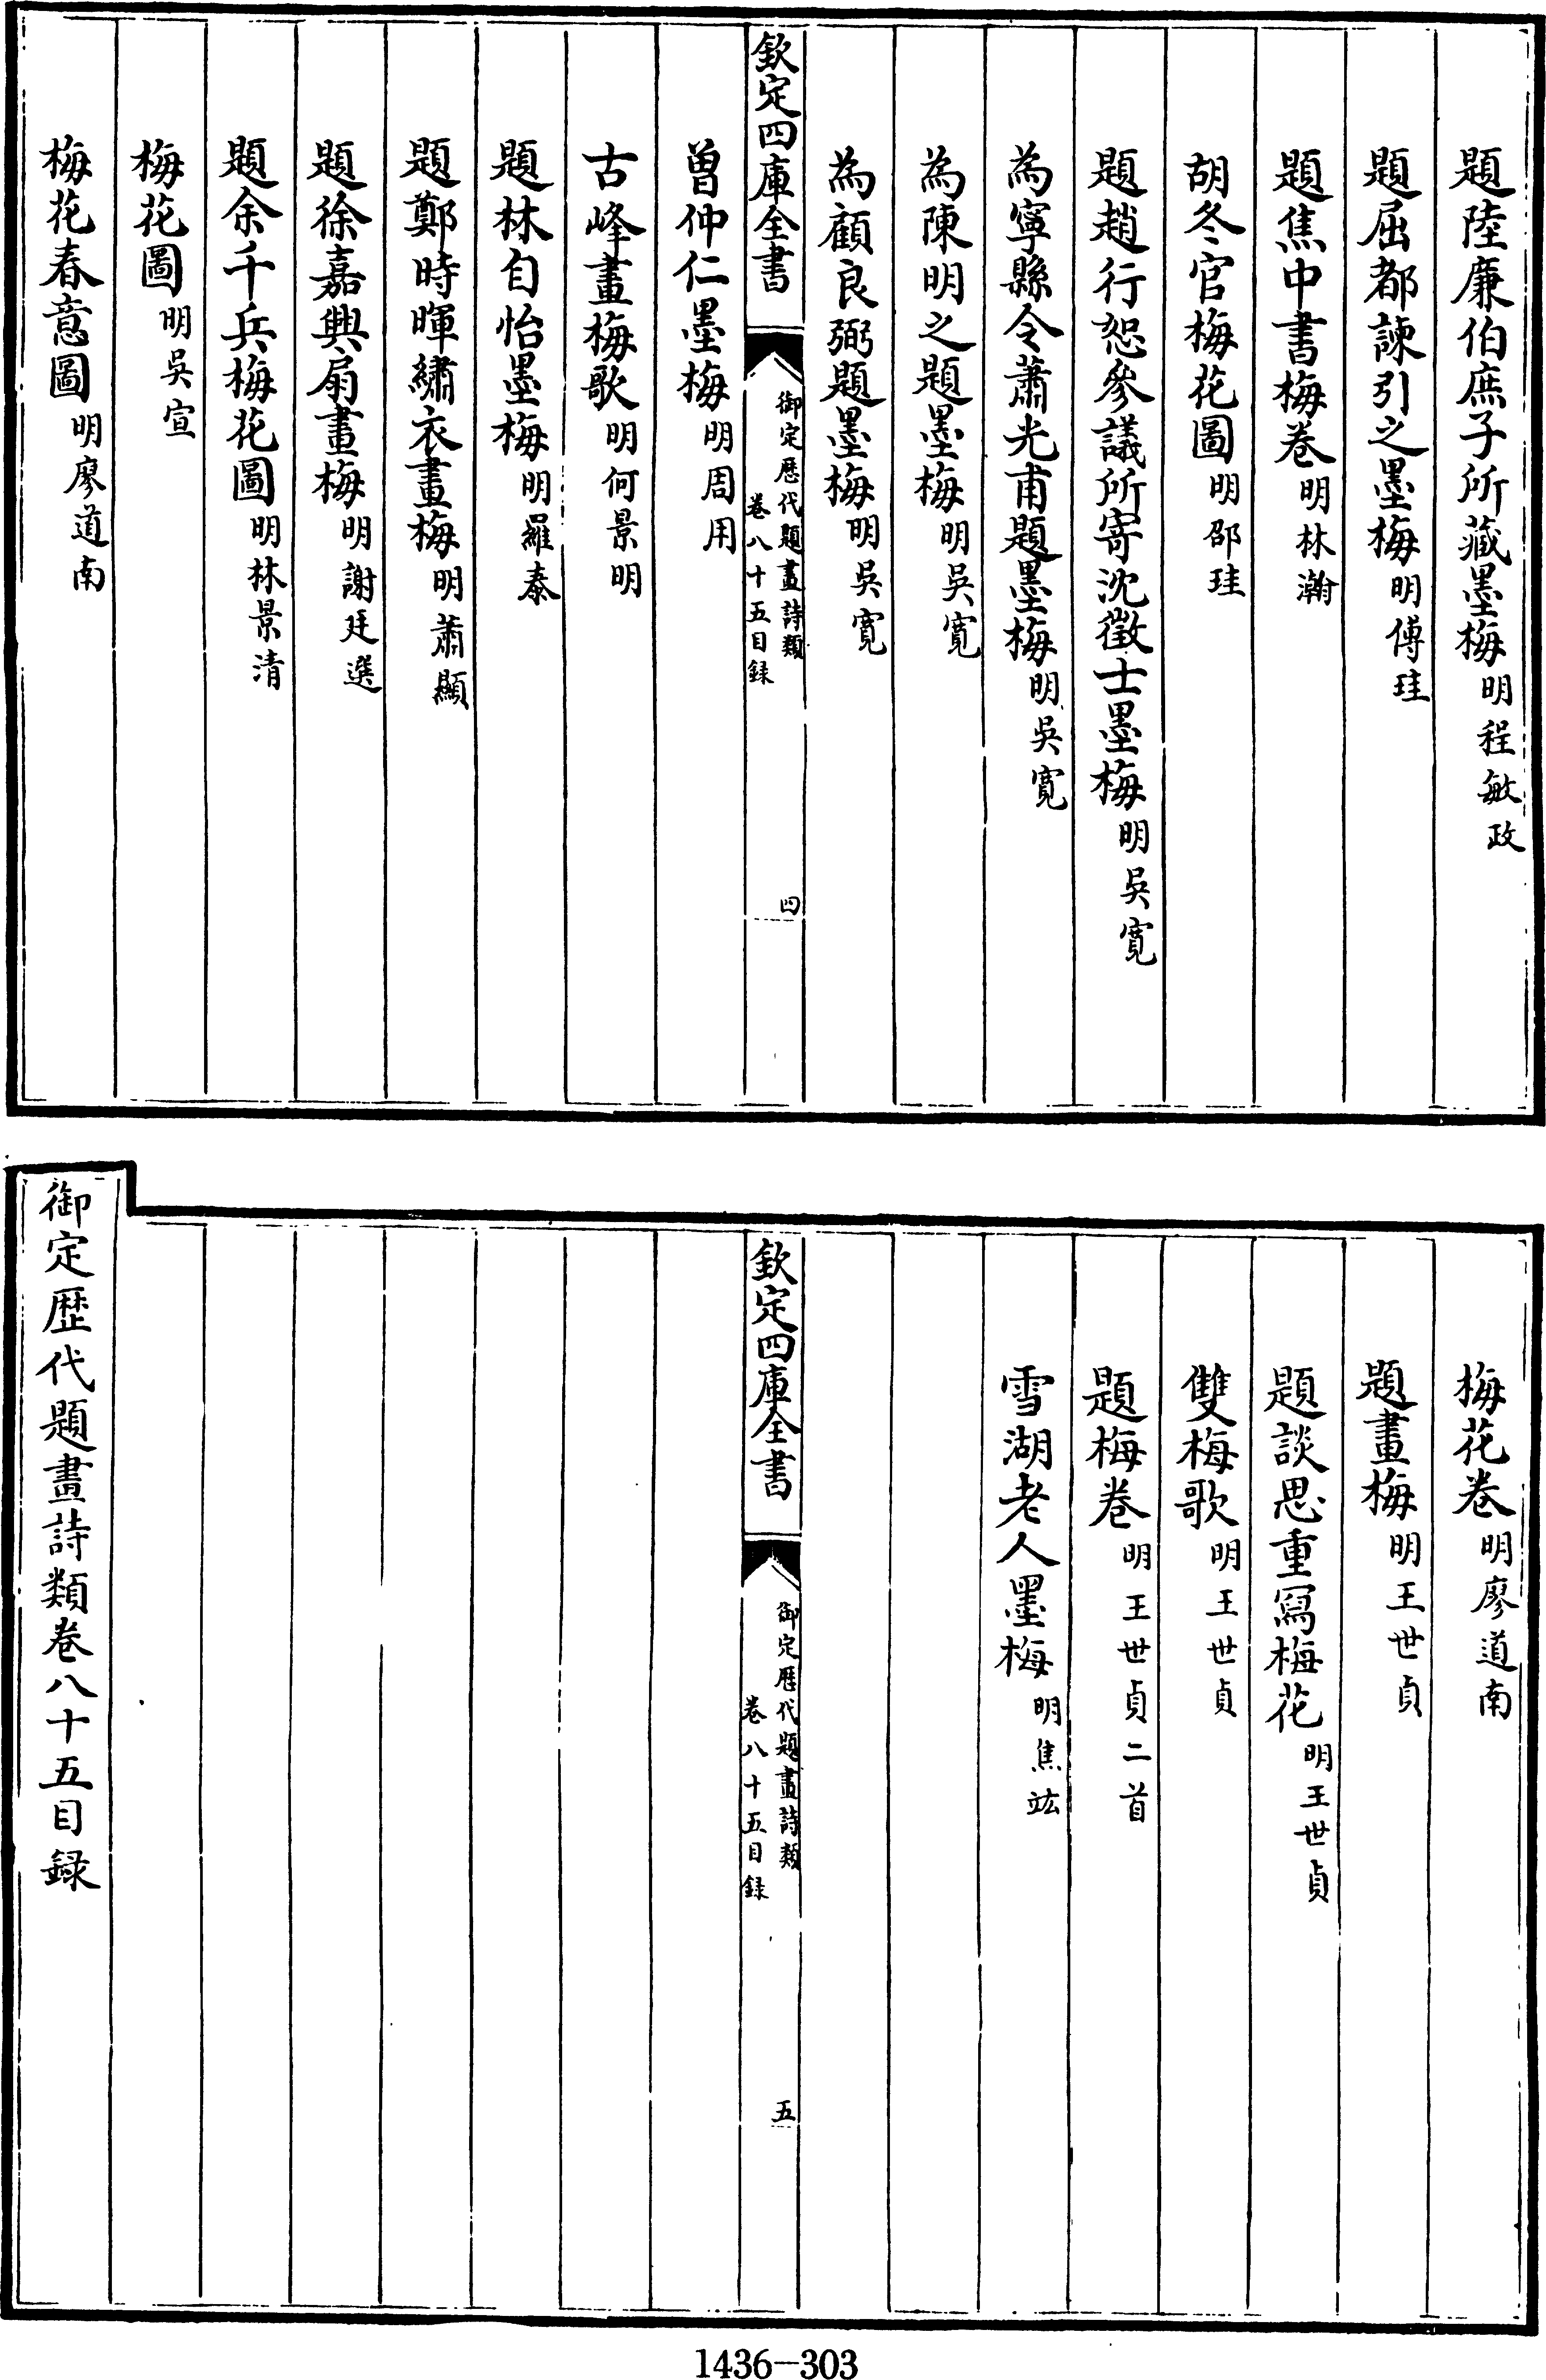 題陸廉伯庶子所藏墨梅明程敏政
題屈都諫引之墨梅明傅珪
題焦中書梅卷明林瀚
胡冬官梅花圖明邵珪
題趙行恕參議所寄沈徵士墨梅明吳寬
為寧縣令蕭光甫題墨梅明吳寬
為陳明之題墨梅明吳寬
為顧良弼題墨梅明吳寬
欽定四庫全書
御定歷代題畫詩類
卷八十五目録
四
曾仲仁墨梅明周用
古峰畫梅歌明何景明
題林自怡墨梅明羅泰
題鄭時暉繡衣畫梅明蕭顯
題徐嘉興扇畫梅明謝廷選
題余千兵梅花圖明林景清
梅花圖明吳宣
梅花春意圖明廖道南
梅花卷明廖道南
題畫梅明王世貞
題談思重寫梅花明王世貞
雙梅歌明王世貞
題梅卷明王世貞二首
雪湖老人墨梅明焦竑
欽定四庫全書
御定歷代題畫詩類
卷八十五目録
五
御定歷代題畫詩類卷八十五目録
1436-303